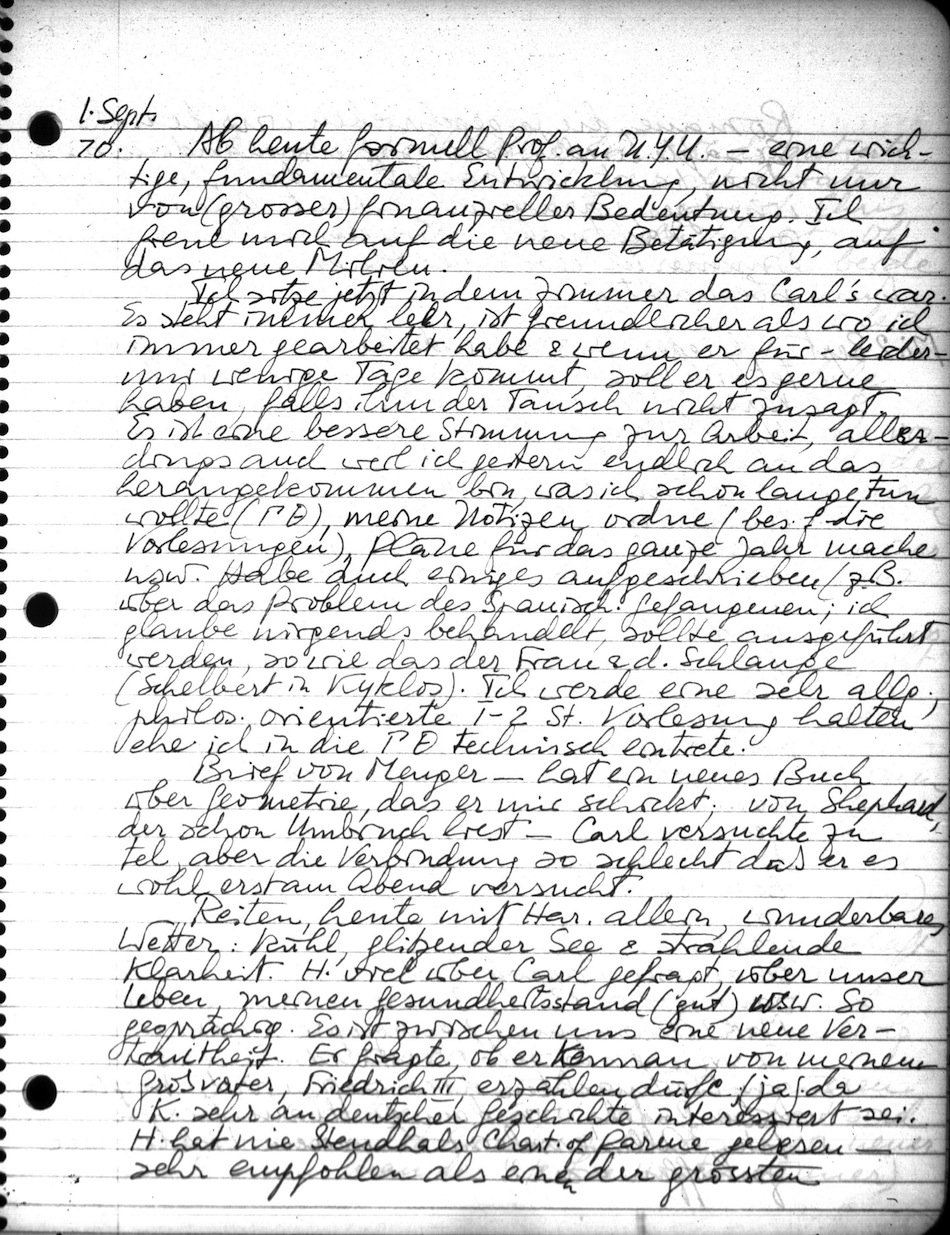 1. Sept.
70. Ab heute formell Prof. an N.Y.U. – eine wich-
tige, fundamentale Entwicklung, nicht nur
von (grosser) finanzieller Bedeutung. Ich
freue mich auf die neue Betätigung, auf
das neue Milieu.
Ich sitze jetzt in dem Zimmer das Carl's war.
Es steht immer leer, ist freundlicher als wo ich
immer gearbeitet habe & wenn er für – leider –
nur wenige Tage kommt, soll er es gerne
haben, falls ihm der Tausch nicht zusagt.
Es ist eine bessere Stimmung zur Arbeit, aller-
dings auch weil ich gestern endlich an das
herangekommen bin, was ich schon lange tun
wollte (ΓΘ), meine Notizen ordne (bes. f. die
Vorlesungen), Pläne für das ganze Jahr mache
usw. Habe auch einiges aufgeschrieben (z.B.
über das Problem des Spanisch. Gefangenen; ich
glaube nirgends behandelt, sollte ausgeführt
werden, sowie das der Frau & d. Schlange
(Schelbert in Kyklos). Ich werde eine sehr allg.,
philos. orientierte 1-2 St. Vorlesung halten
ehe ich in die ΓΘ technisch eintrete.
Brief von Menger – hat ein neues Buch
über Geometrie, das er mir schickt; von Shephard,
der schon Umbruch liest – Carl versuchte zu
tel, aber die Verbindung so schlecht dass er es
wohl erst am Abend versucht.
Reiten, heute mit Har. allein, wunderbares
Wetter: Kühl, glitzender See & strahlende
Klarheit. H. viel über Carl gefragt, über unser
Leben, meinen Gesundheitsstand (gut) usw. So
gesprächig. Es ist zwischen uns eine neue Ver-
trautheit. Er fragte, ob er Kennan von meinem
Grosvater, Friedrich III erzählen dürfe, (ja) da
K. sehr an deutscher Geschichte interessiert sei.
H. hat nie Stendhals Chart. of Parme gelesen –
sehr empfohlen als einen der grössten